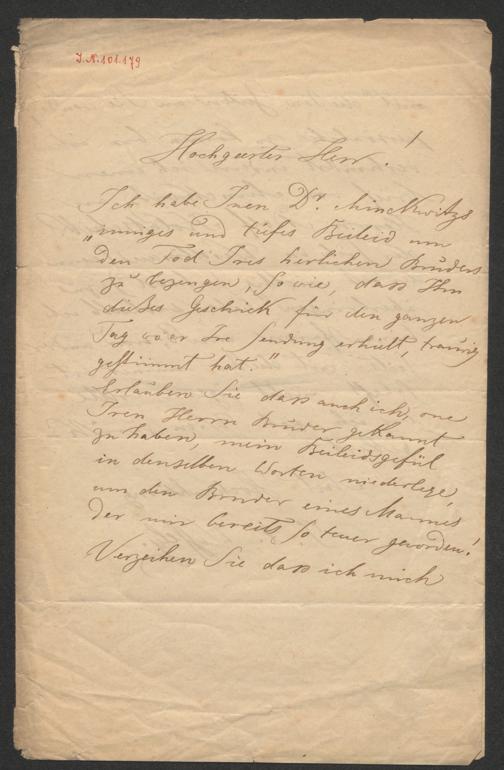 J.N.101.179
Hochgeerter Herr!
Ich habe Inen Dr. Minckwitzs
„inniges und tiefes Beileid um
den Tod Ires herlichen Bruders
zu bezeugen, so wie, dass Ihm
dießes Geschick für den ganzen
Tag wo er Ire Sendung erhielt, traurig
gestimmt hat."
Erlauben Sie dass auch ich, one
Iren Herrn Bruder gekannt
zu haben, mein Beileidsgefül
in denselben Worten niederlege,
um den Bruder eines Mannes
der mir bereits so teuer geworden!
Verzeihen Sie dass ich mich